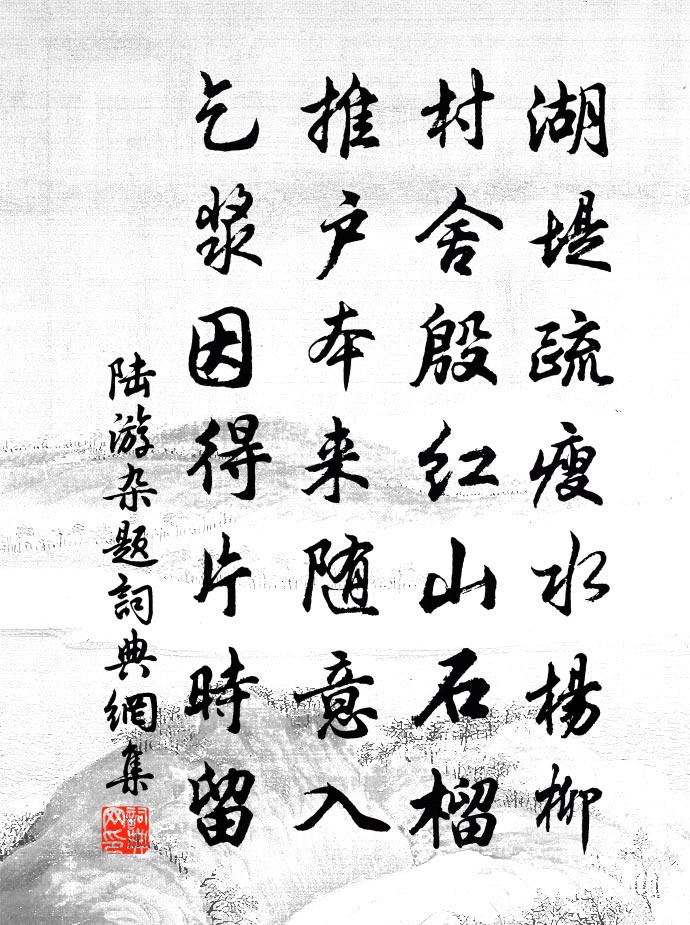 湖堤疏瘦水楊柳
村舍殷红山石榴
推户本来随意入
乞漿因得片時留
陆游杂题詞典網集